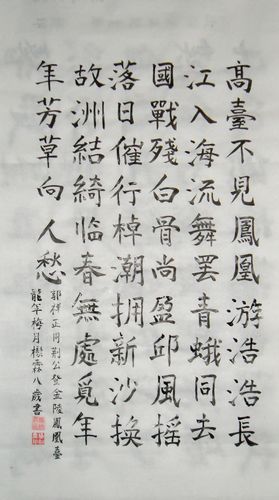 高臺不見鳳凰游浩浩長
江入海流舞罢青蛾同去
國戰殘白骨尚盈邱風摇
落日催行棹潮拥新沙换
故洲結綺临春無處覓年
年芳草向人愁
郭祥正同荆公登金陵鳳凰臺
龍年梅月楊霖八歲書